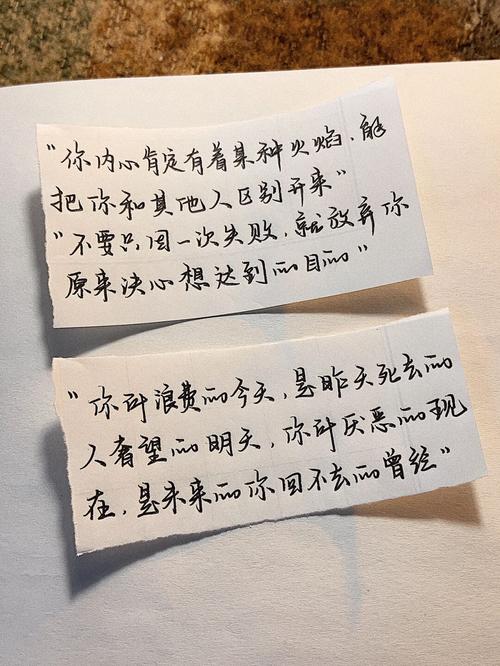 "你内心肯定有着某种火焰，能
把你和其他人区别开来"
"不要只因一次失败，就放弃你
原来决心想达到的目的"
"你所浪费的今天，是昨天死去的
人奢望的明天，你所厌恶的现
在，是未来的你回不去的曾经"